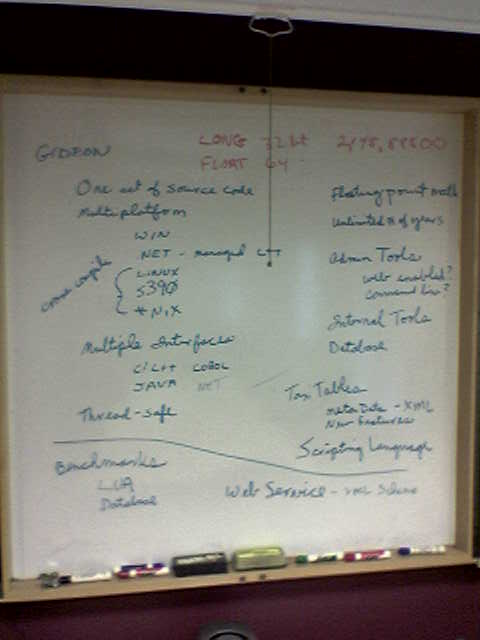 GIDEON
LONG 32 bit
FLOAT 64
One set of source code
Multiplatform
WIN
NET - managed C++
LINUX
S390
* NIX
cross compile
Multiple Interfaces
C/C++ COBOL
JAVA NET
Thread-safe
Floating point math
Unlimited # of years
Admin Tools
web enabled?
command line?
Internal Tools
Database
Tax Tables
meta Data - XML
New Features
Scripting Language
Benchmarks
LUA
Database
Web Service - XML Schema